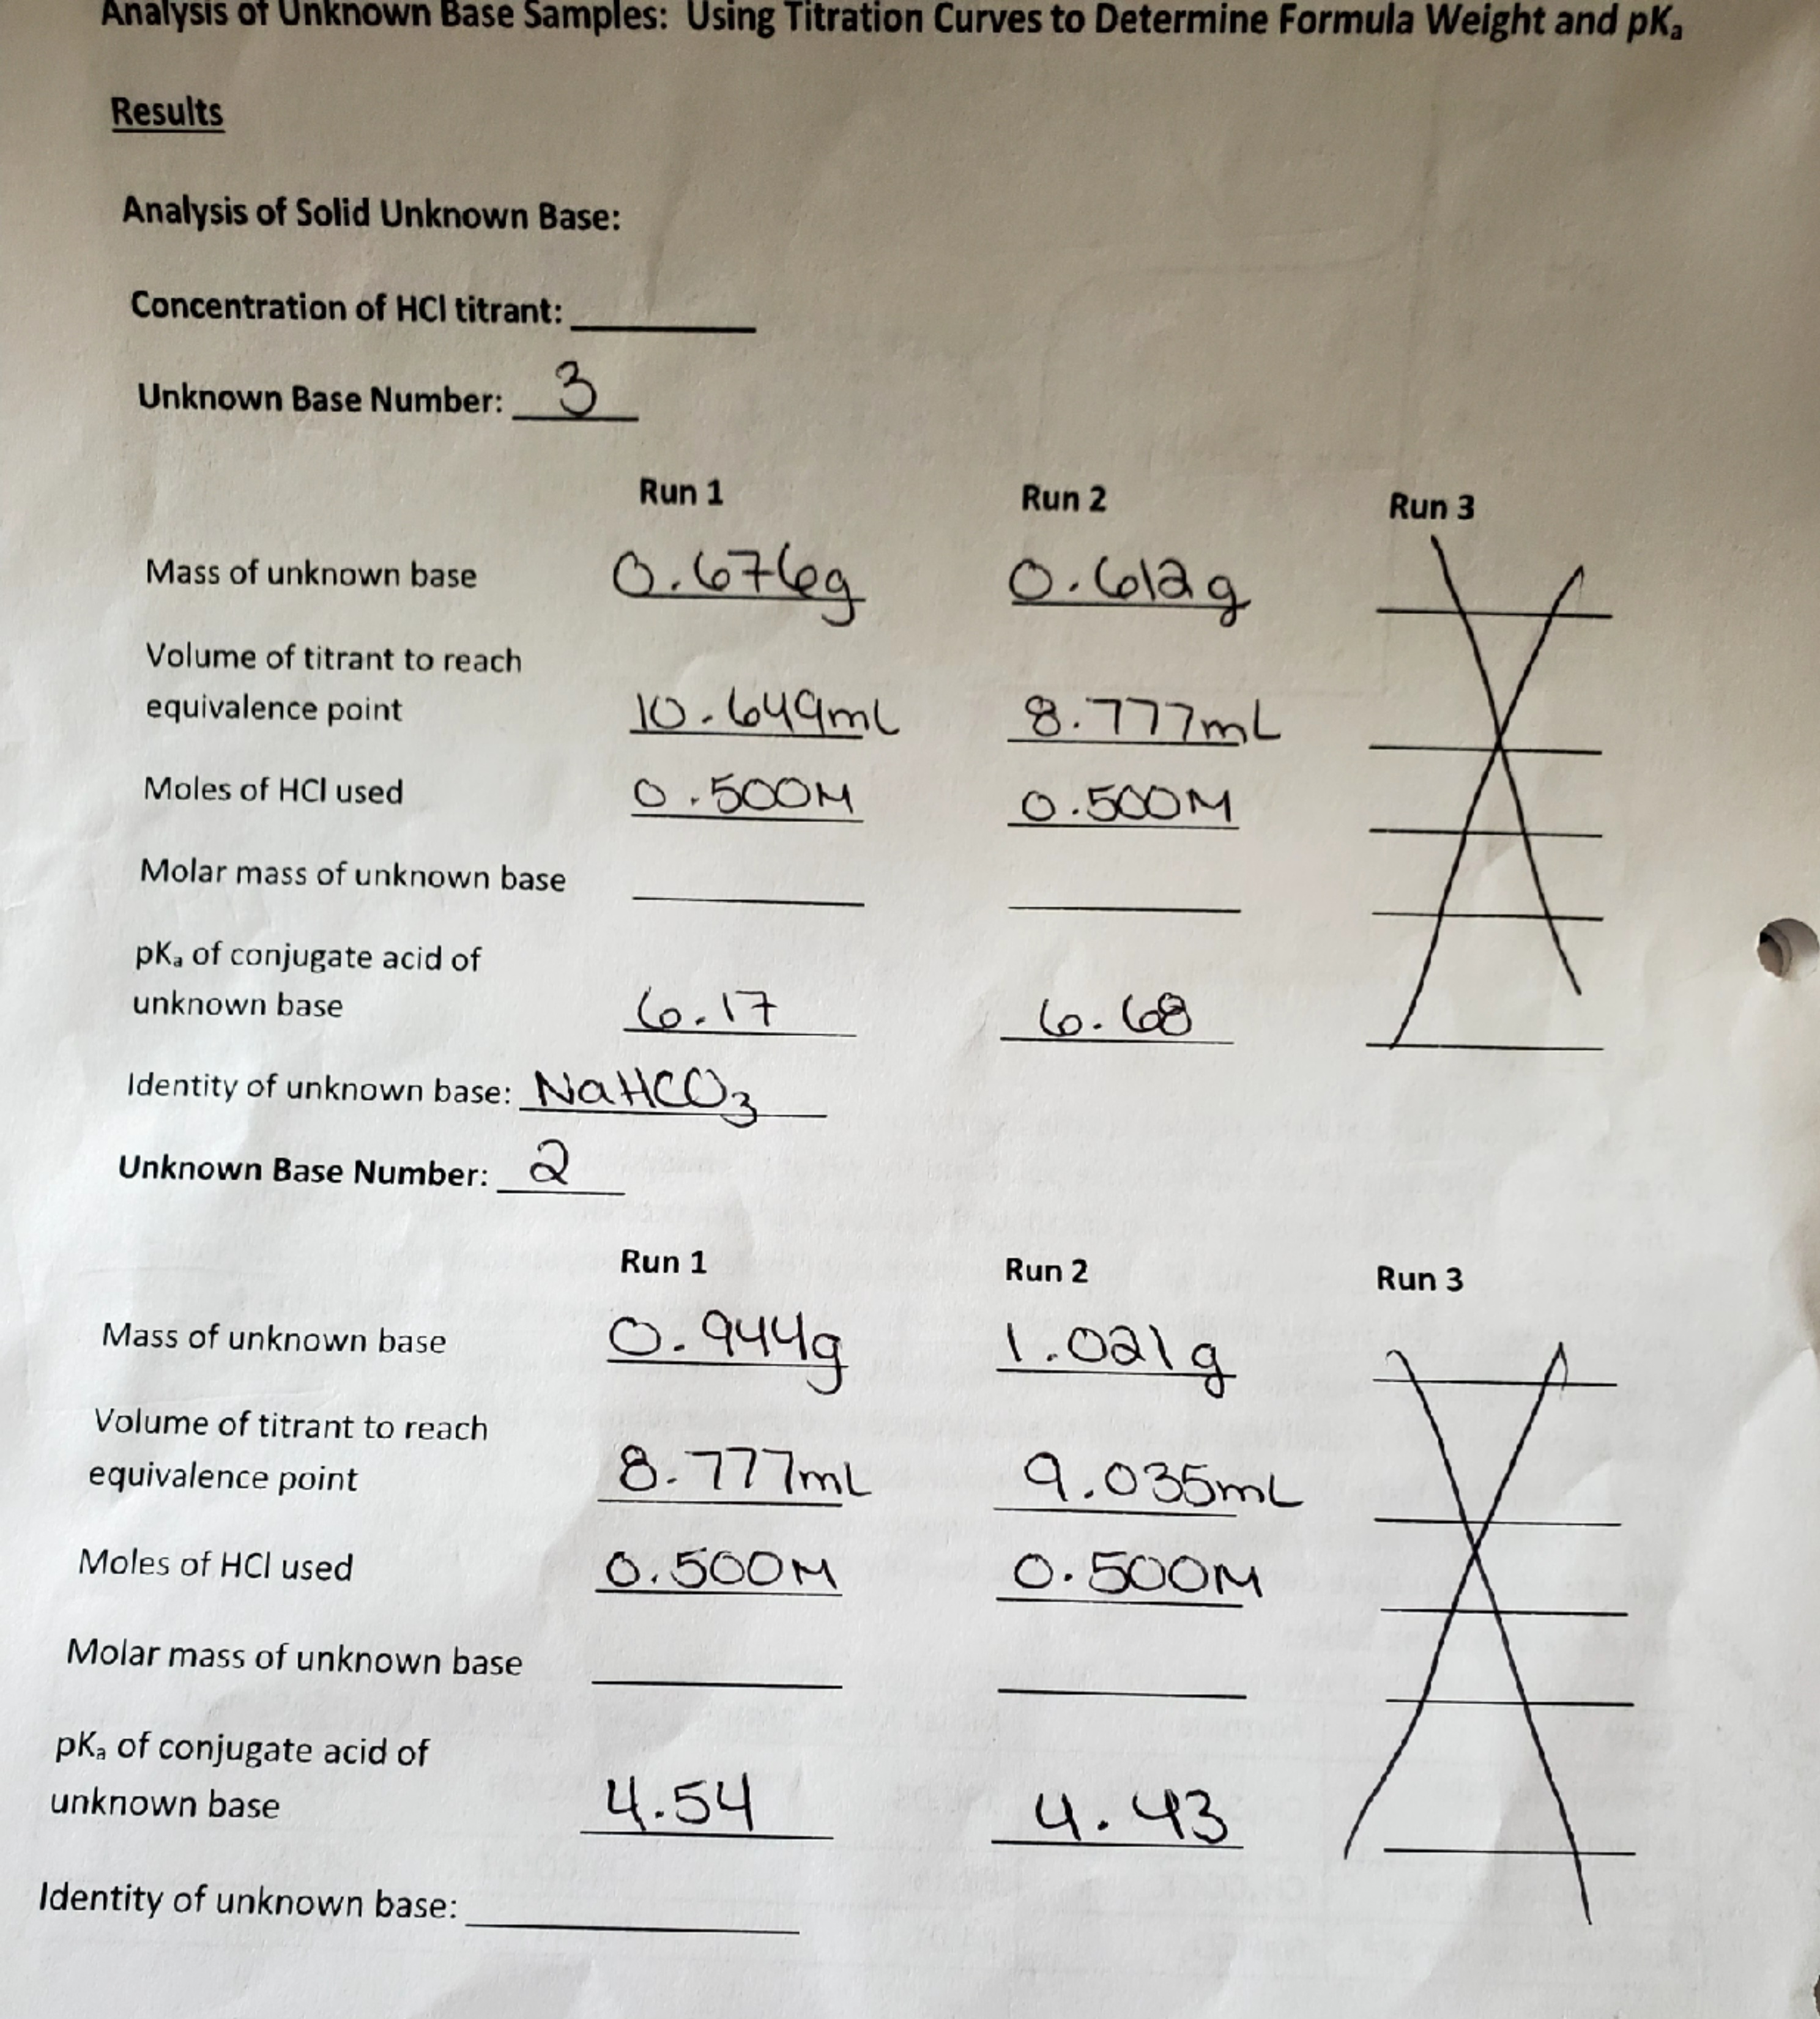 Analysis of Unknown Base Samples: Using Titration Curves to Determine Formula Weight and pKa
Results
Analysis of Solid Unknown Base:
Concentration of HCl titrant:
Unknown Base Number: 3
Run 1 Run 2 Run 3
Mass of unknown base 0.676g 0.612g
Volume of titrant to reach
equivalence point 10.649mL 8.777mL
Moles of HCl used 0.500M 0.500M
Molar mass of unknown base
pKa of conjugate acid of
unknown base 6.17 6.68
Identity of unknown base: NaHCO3
Unknown Base Number: 2
Run 1 Run 2 Run 3
Mass of unknown base 0.944g 1.021g
Volume of titrant to reach
equivalence point 8.777mL 9.035mL
Moles of HCl used 0.500M 0.500M
Molar mass of unknown base
pKa of conjugate acid of
unknown base 4.54 4.43
Identity of unknown base: